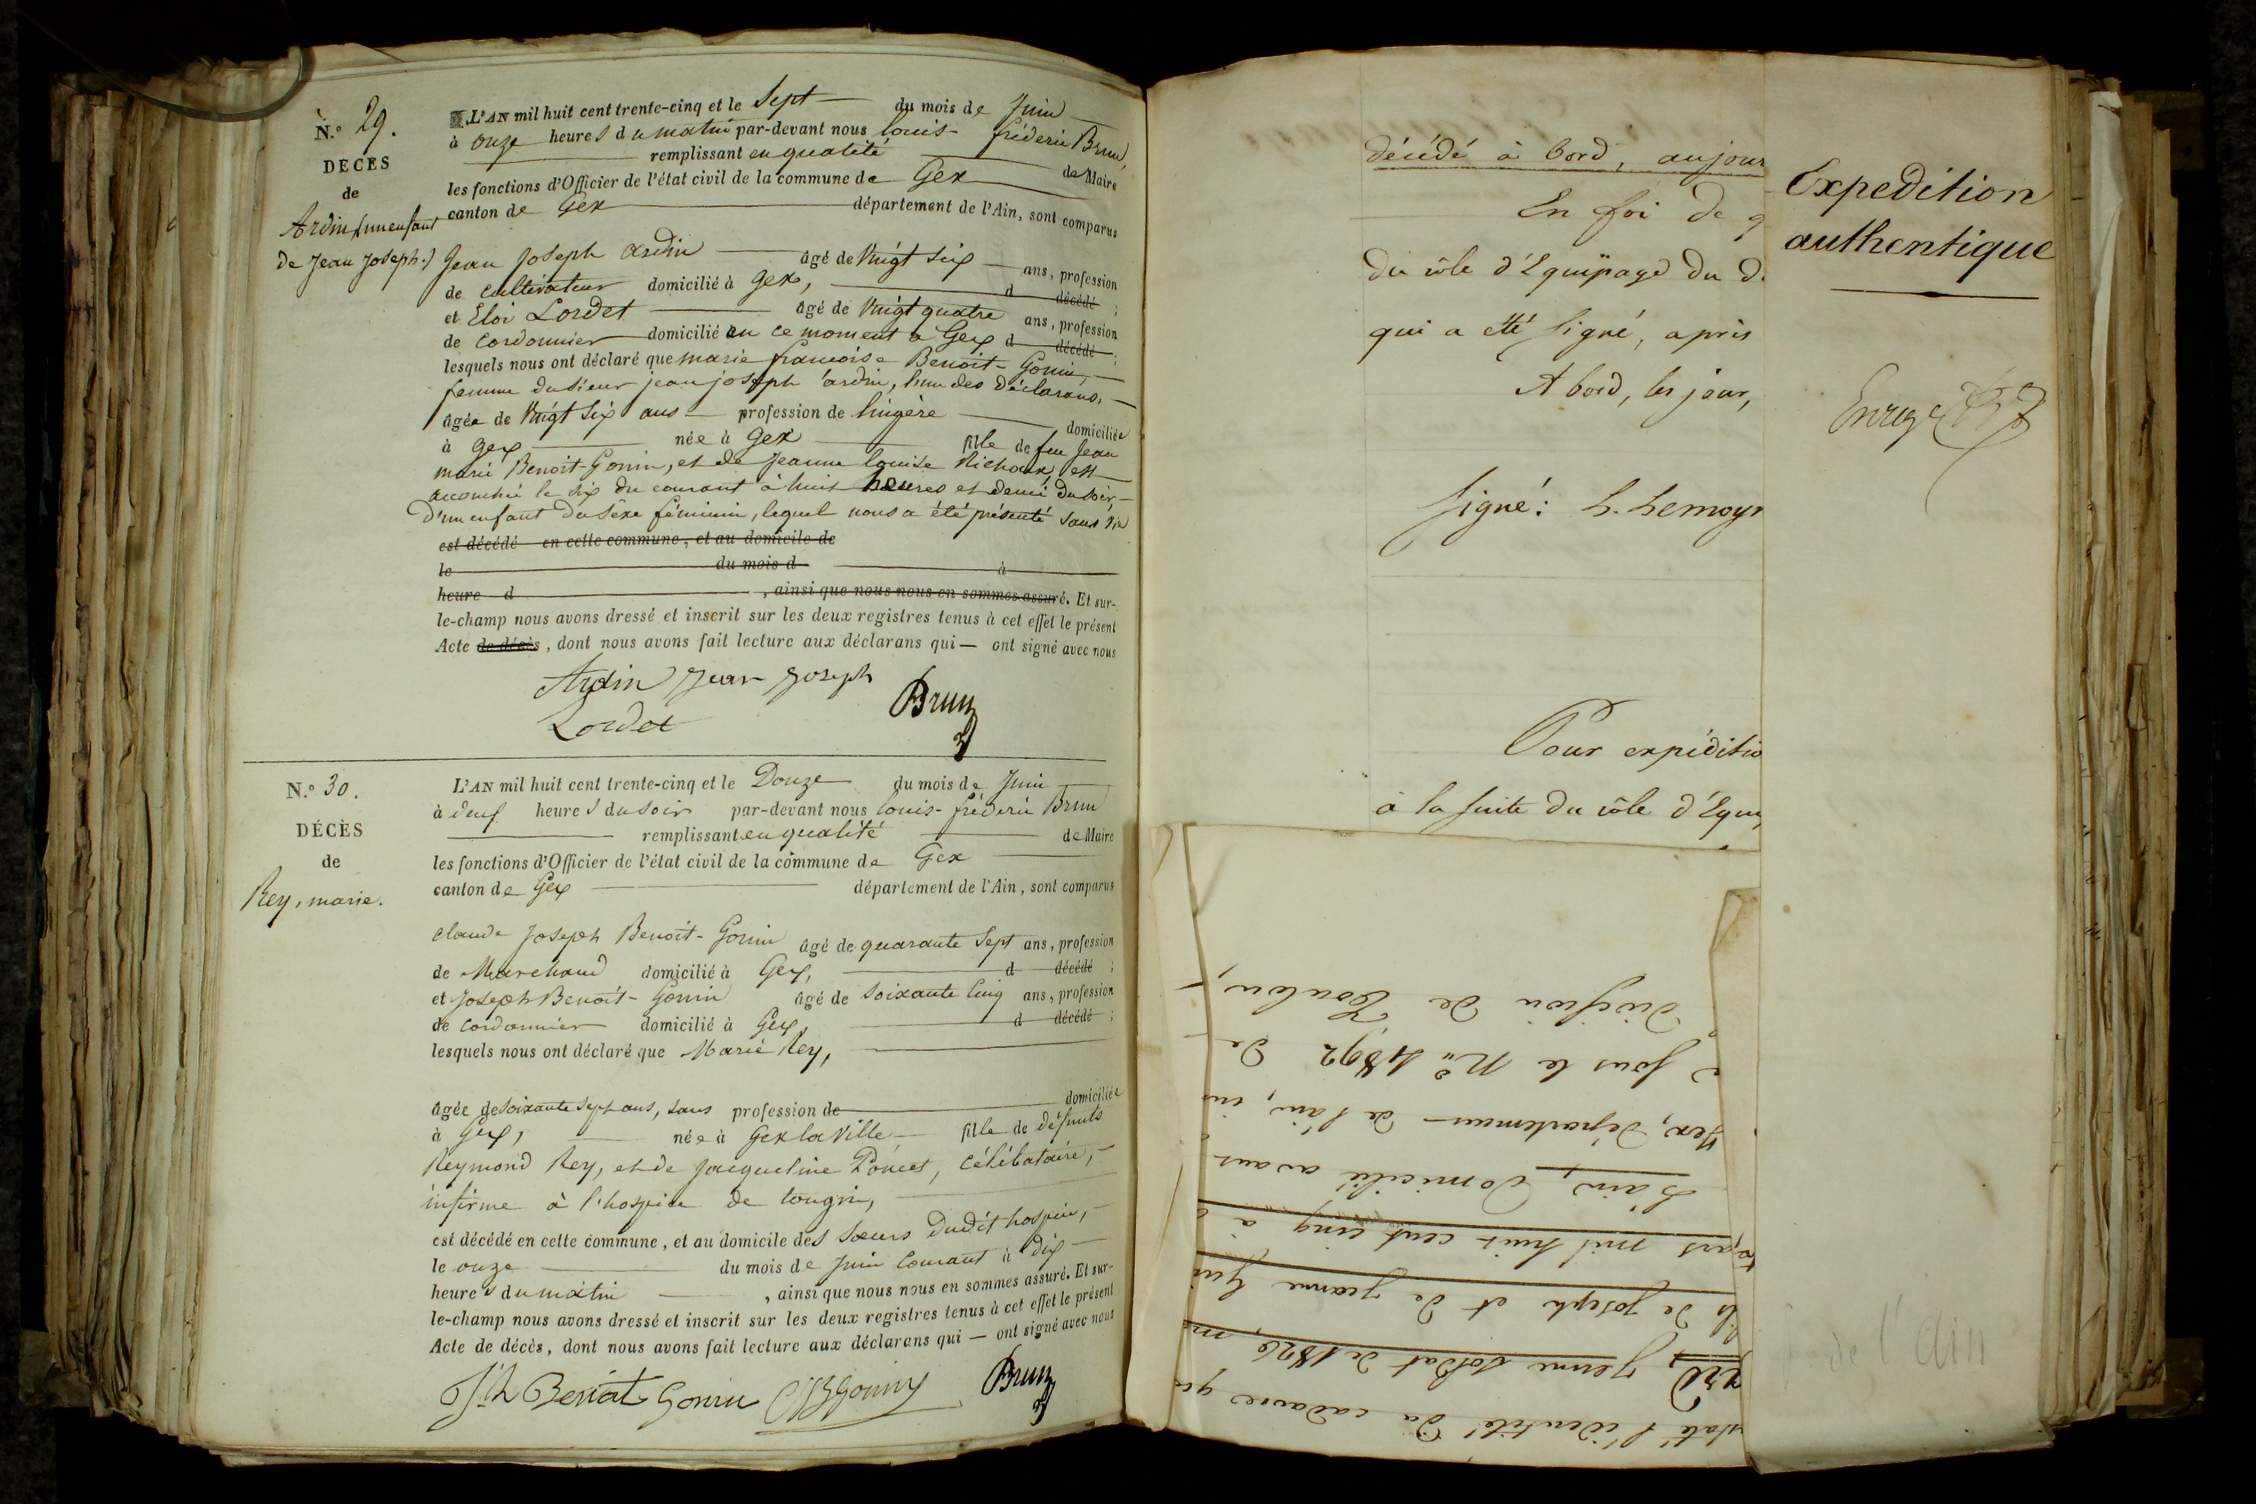 N.° 29.
DECES
de
Ardin (un enfant
de Jean Joseph.)
L'AN mil huit cent trente-cinq et le Sept du mois de Juin
à onze heures du matin par-devant nous Louis-fréderic Brun,
remplissant en qualité de Maire
les fonctions d'Officier de l'état civil de la commune de Gex
canton de Gex département de l'Ain, sont comparus
Jean Joseph ardin âgé de Vingt six ans, profession
de cultivateur domicilié à Gex, d décédé ;
et Eloi Lordet âgé de Vingt quatre ans, profession
de cordonnier domicilié en ce moment à Gex d décédé ;
lesquels nous ont déclaré que marie françoise Benoit-Gonin,
femme du sieur jean joseph ardin, l'un des déclarans,
âgée de Vingt six ans profession de lingère domiciliée
à Gex née à Gex fille de feu Jean
marie Benoit-Gonin, et de Jeanne Louise est
accouchée le six du courant à huit heures et demi du soir
d'un enfant du sexe féminin, lequel nous a été présenté sans vie
est décédé en cette commune, et au domicile de
le du mois d à
heure d , ainsi que nous nous en sommes assuré. Et sur-
le-champ nous avons dressé et inscrit sur les deux registres tenus à cet effet le présent
Acte de décès, dont nous avons fait lecture aux déclarans qui — ont signé avec nous
Ardin Jean Joseph
Lordet
Brun
N.° 30.
DÉCÈS
de
Rey, marie.
L'AN mil huit cent trente-cinq et le Douze du mois de Juin
à deux heures du soir par-devant nous Louis-fréderic Brun
remplissant en qualité de Maire
les fonctions d'Officier de l'état civil de la commune de Gex
canton de Gex département de l'Ain, sont comparus
Claude Joseph Benoit-Gonin âgé de quarante sept ans, profession
de Marchand domicilié à Gex, d décédé ;
et Joseph Benoit-Gonin âgé de soixante cinq ans, profession
de cordonnier domicilié à Gex, d décédé ;
lesquels nous ont déclaré que Marie Rey,
âgée de soixante sept ans, sans profession de domiciliée
à Gex, née à Gex la Ville fille de défunts
Reymond Rey, et de Jacqueline Poncet, célibataire,
infirme à l'hospice de tougin,
est décédé en cette commune, et au domicile des sœurs dudit hospice,
le onze du mois de Juin courant à dix
heures du matin , ainsi que nous nous en sommes assuré. Et sur-
le-champ nous avons dressé et inscrit sur les deux registres tenus à cet effet le présent
Acte de décès, dont nous avons fait lecture aux déclarans qui — ont signé avec nous
Jh Benoit Gonin
Brun
décédé à bord, aujour
En foi de q
du rôle d'Equipage du d
qui a été signé, après
A bord, les jour,
signé: L. Lemoyn
Pour expéditio
à la suite du rôle d'Equi
Expedition
authentique
de l'Ain
staté l'identité du cadavre
jeune soldat de 1826,
ls de joseph et de jeanne
ars mil huit cent cinq à
L'ain, Domicilié avant
Gex, département de l'ain,
sous le N.° 4892 de
division de Toulon,